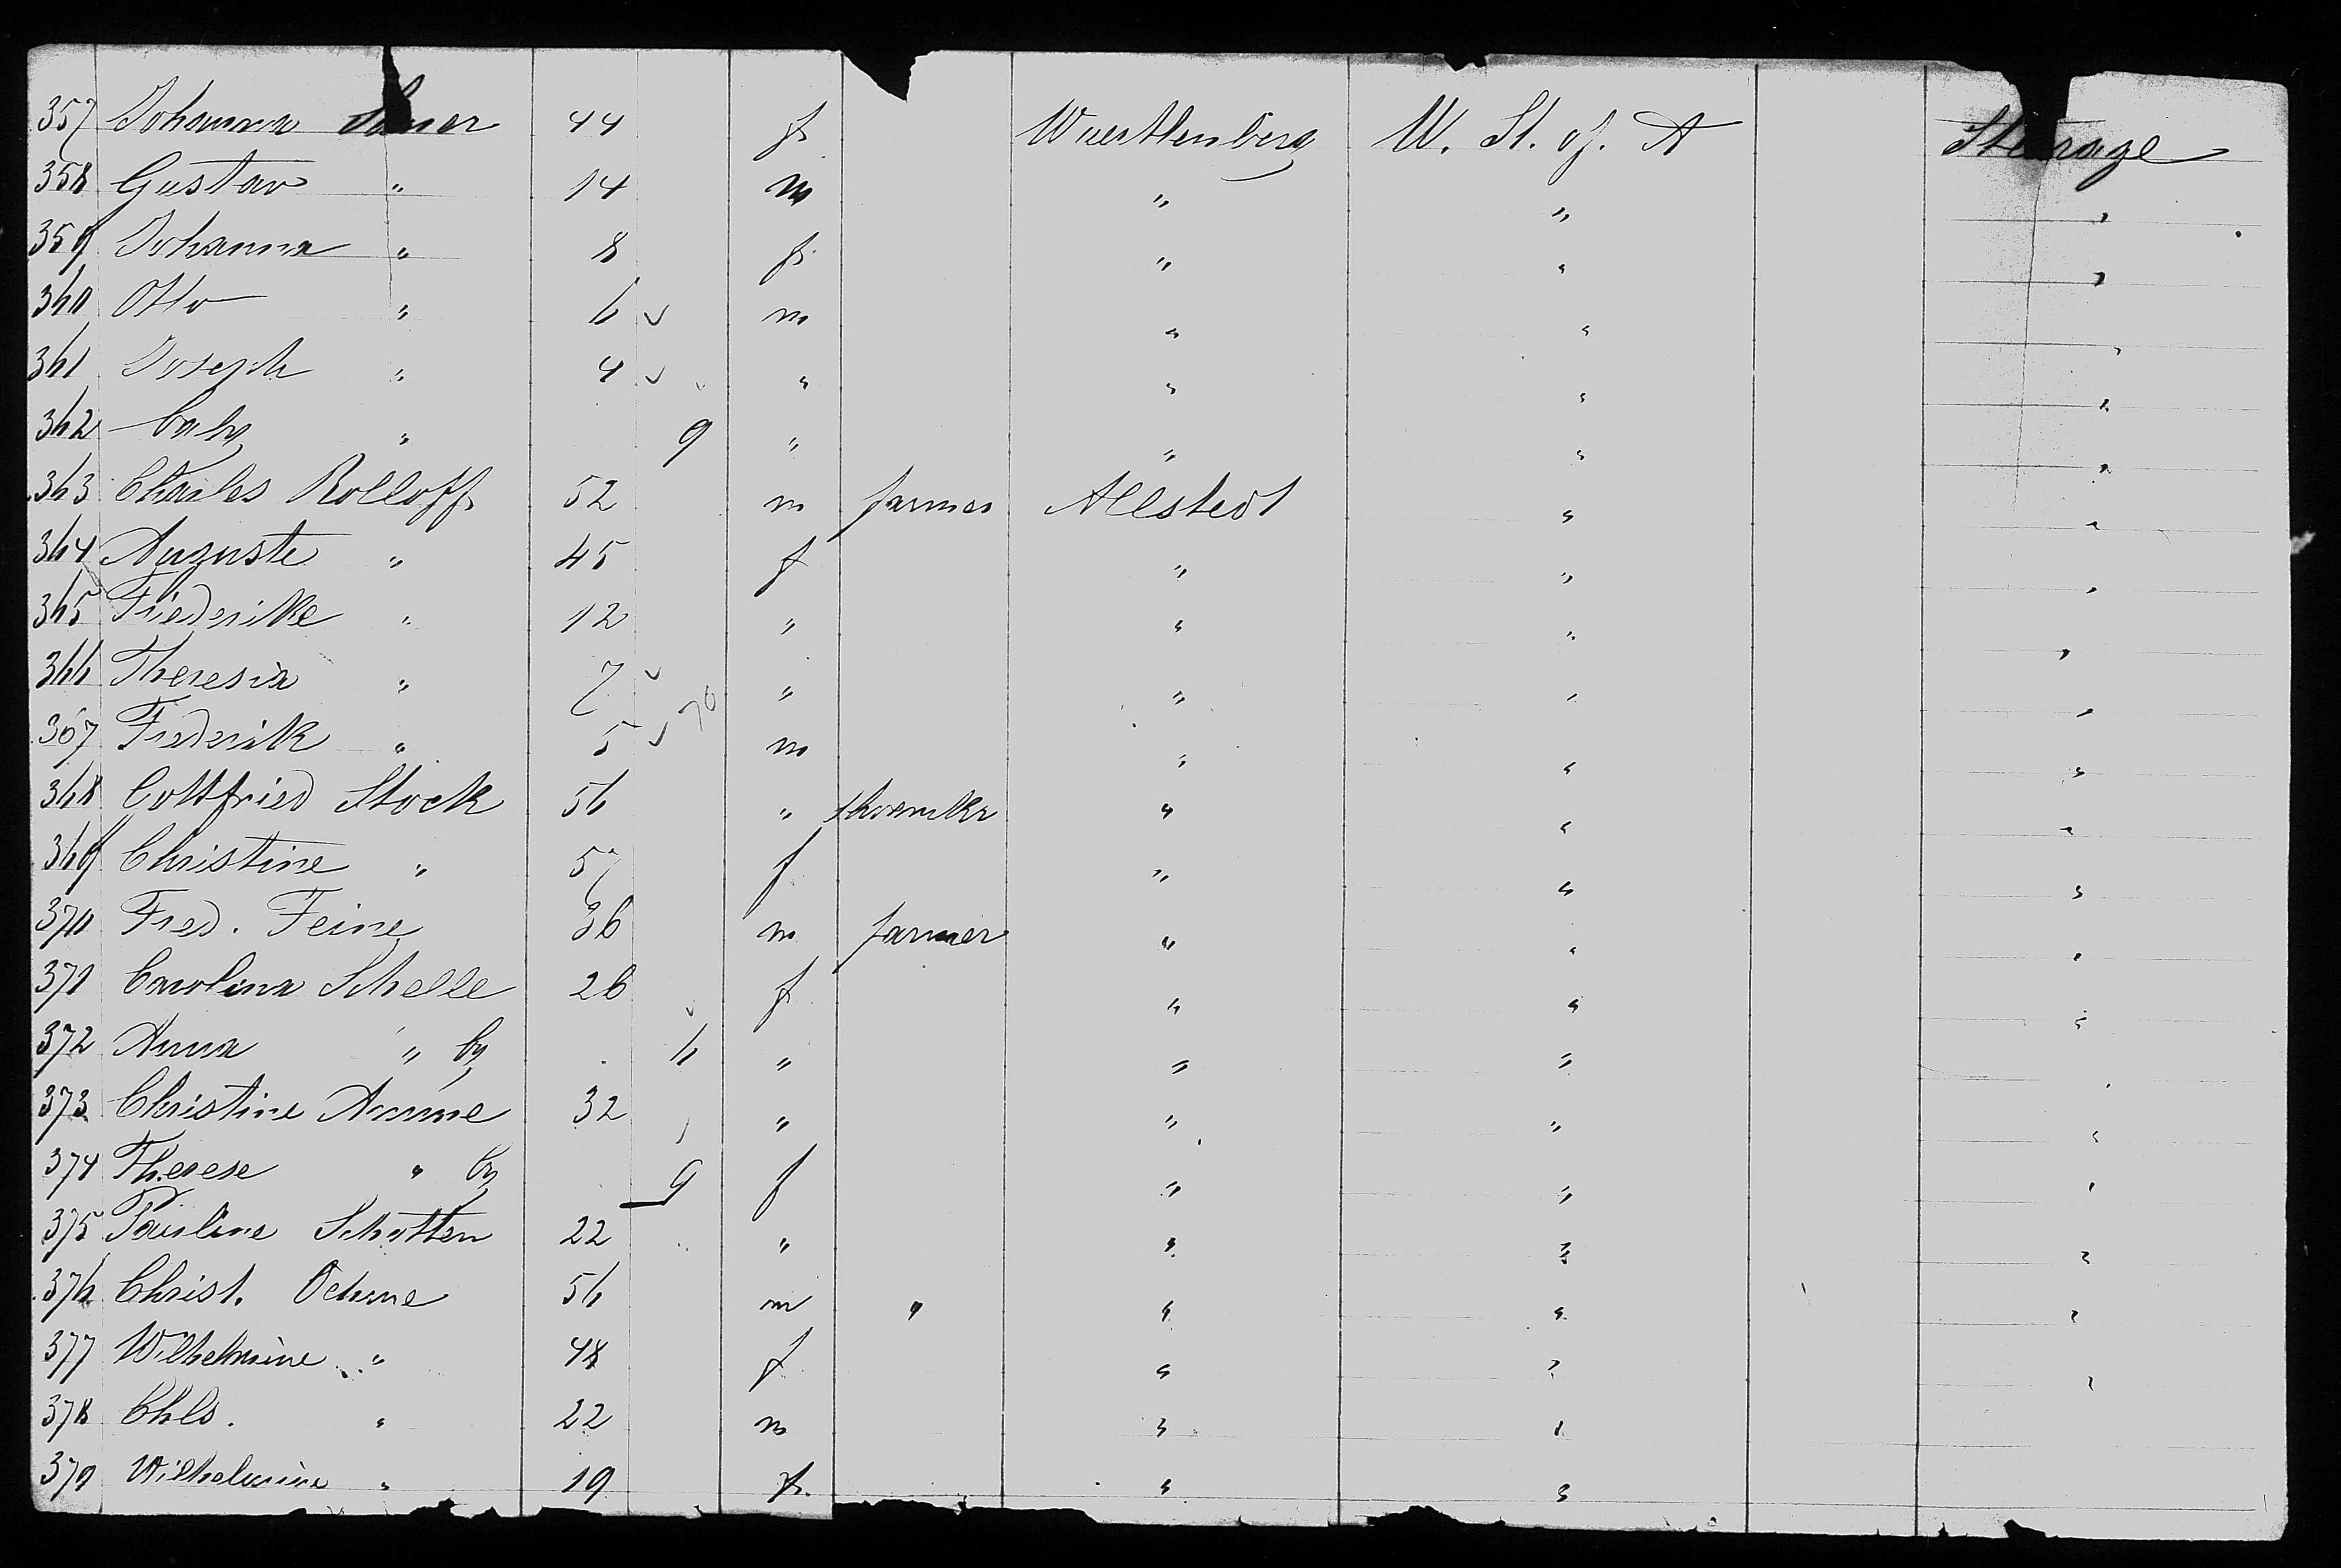 357 Johanna 44 f. Wuerttenberg U. St. of. A Steerage
358 Gustav " 14 m " " "
359 Johanna " 8 f. " " "
360 Otto " 6 m " " "
361 Joseph " 4 " " " "
362 baby " 9 " " " "
363 Charles Rolloff 52 m farmer Allstedt " "
364 Auguste " 45 f " " "
365 Friederike " 12 " " " "
366 Theresia " 7 " " " "
70
367 Frederik " 5 m " " "
368 Gottfried Stock 56 " shoemkr " " "
369 Christine " 57 f " " "
370 Fred. Feine 36 m farmer " " "
371 Carolina Schelle 26 f " " "
372 Anna " by 6 " " "
373 Christine Amme 32 " " " "
374 Therese " by 9 f " " "
375 Pauline Schotten 22 " " " "
376 Christ. Oehme 56 m " " " "
377 Wilhelmine " 48 f " " "
378 Chls. " 22 m " "
379 Wilhelmine " 19 f. " "